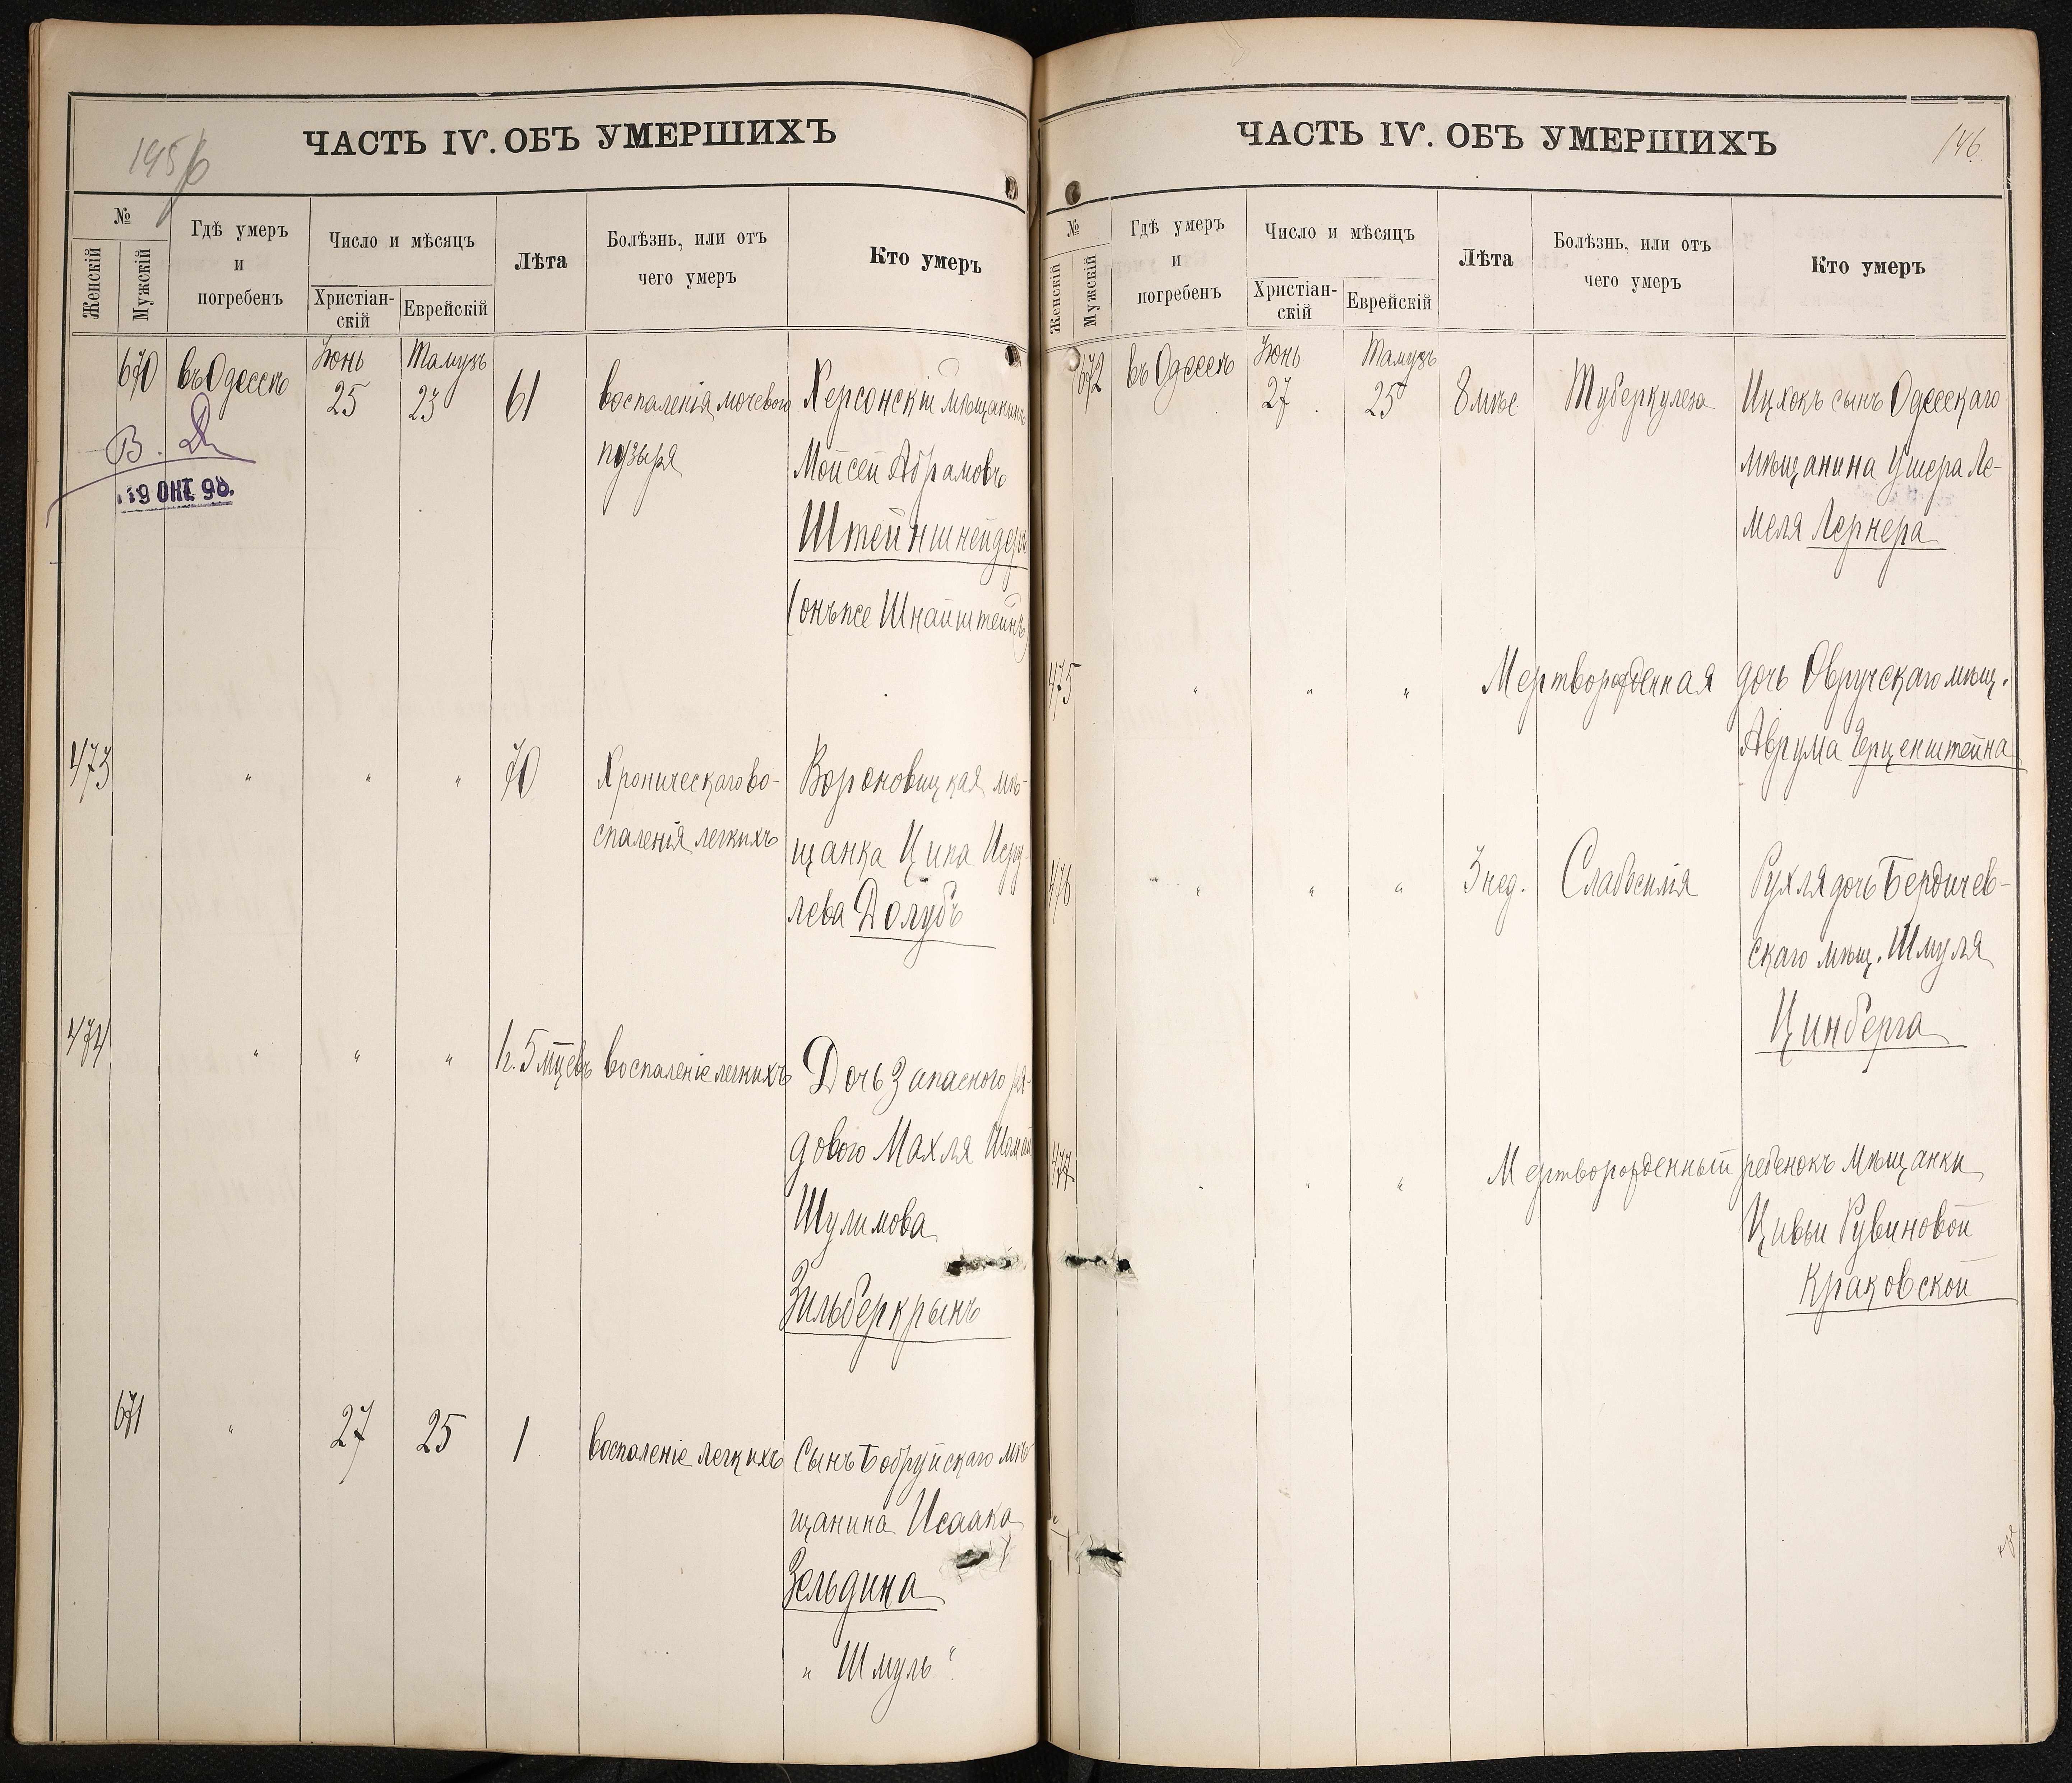 ЧАСТЬ IV. ОБЪ УМЕРШИХЪ
№
Женскій
Мужскій
Гдѣ умеръ
и
погребенъ
Число и мѣсяцъ
Христіан-
скій
Еврейскій
Лѣта
Болѣзнь, или отъ
чего умеръ
Кто умеръ
670 въ Одессѣ Іюнь 25 Тамузъ 23 61 воспаленія мочевого Херсонскій мѣщанинъ
пузыря Мойсей Абрамовъ
Штейншнейдеръ
(онъ же Шнайштейнъ
19 ОКТ. 98.
473 " " " 70 Хроническаго во- Вороновицкая мѣ-
спаленія легкихъ щанка Ципа Исру-
лева Долубъ
474 " " " 1 г. 5 мцевъ воспаленіе легкихъ Дочь запасного ря-
дового Махля
Шулимова
Зильберкрынъ
671 " 27 25 1 воспаленіе легкихъ Сынъ Бобруйскаго мѣ-
щанина Исаака
Зельдина
" Шмуль "
ЧАСТЬ IV. ОБЪ УМЕРШИХЪ
146.
№
Женскій
Мужскій
Гдѣ умеръ
и
погребенъ
Число и мѣсяцъ
Христіан-
скій
Еврейскій
Лѣта
Болѣзнь, или отъ
чего умеръ
Кто умеръ
672 въ Одессѣ Іюнь 27 Тамузъ 25 8 мѣс Туберкулеза Ицхокъ сынъ Одесскаго
мѣщанина Ушера Ле-
меля Лернера
475 " " " Мертворожденная дочь Овручскаго мѣщ.
Аврума Герценштейна
476 " " " 3 нед. Слабосилія Рухля дочь Бердичев-
скаго мѣщ. Шмуля
Цинберга
477 " " " Мертворожденный ребенокъ Мѣщанки
Цивьи Рувиновой
Краковской